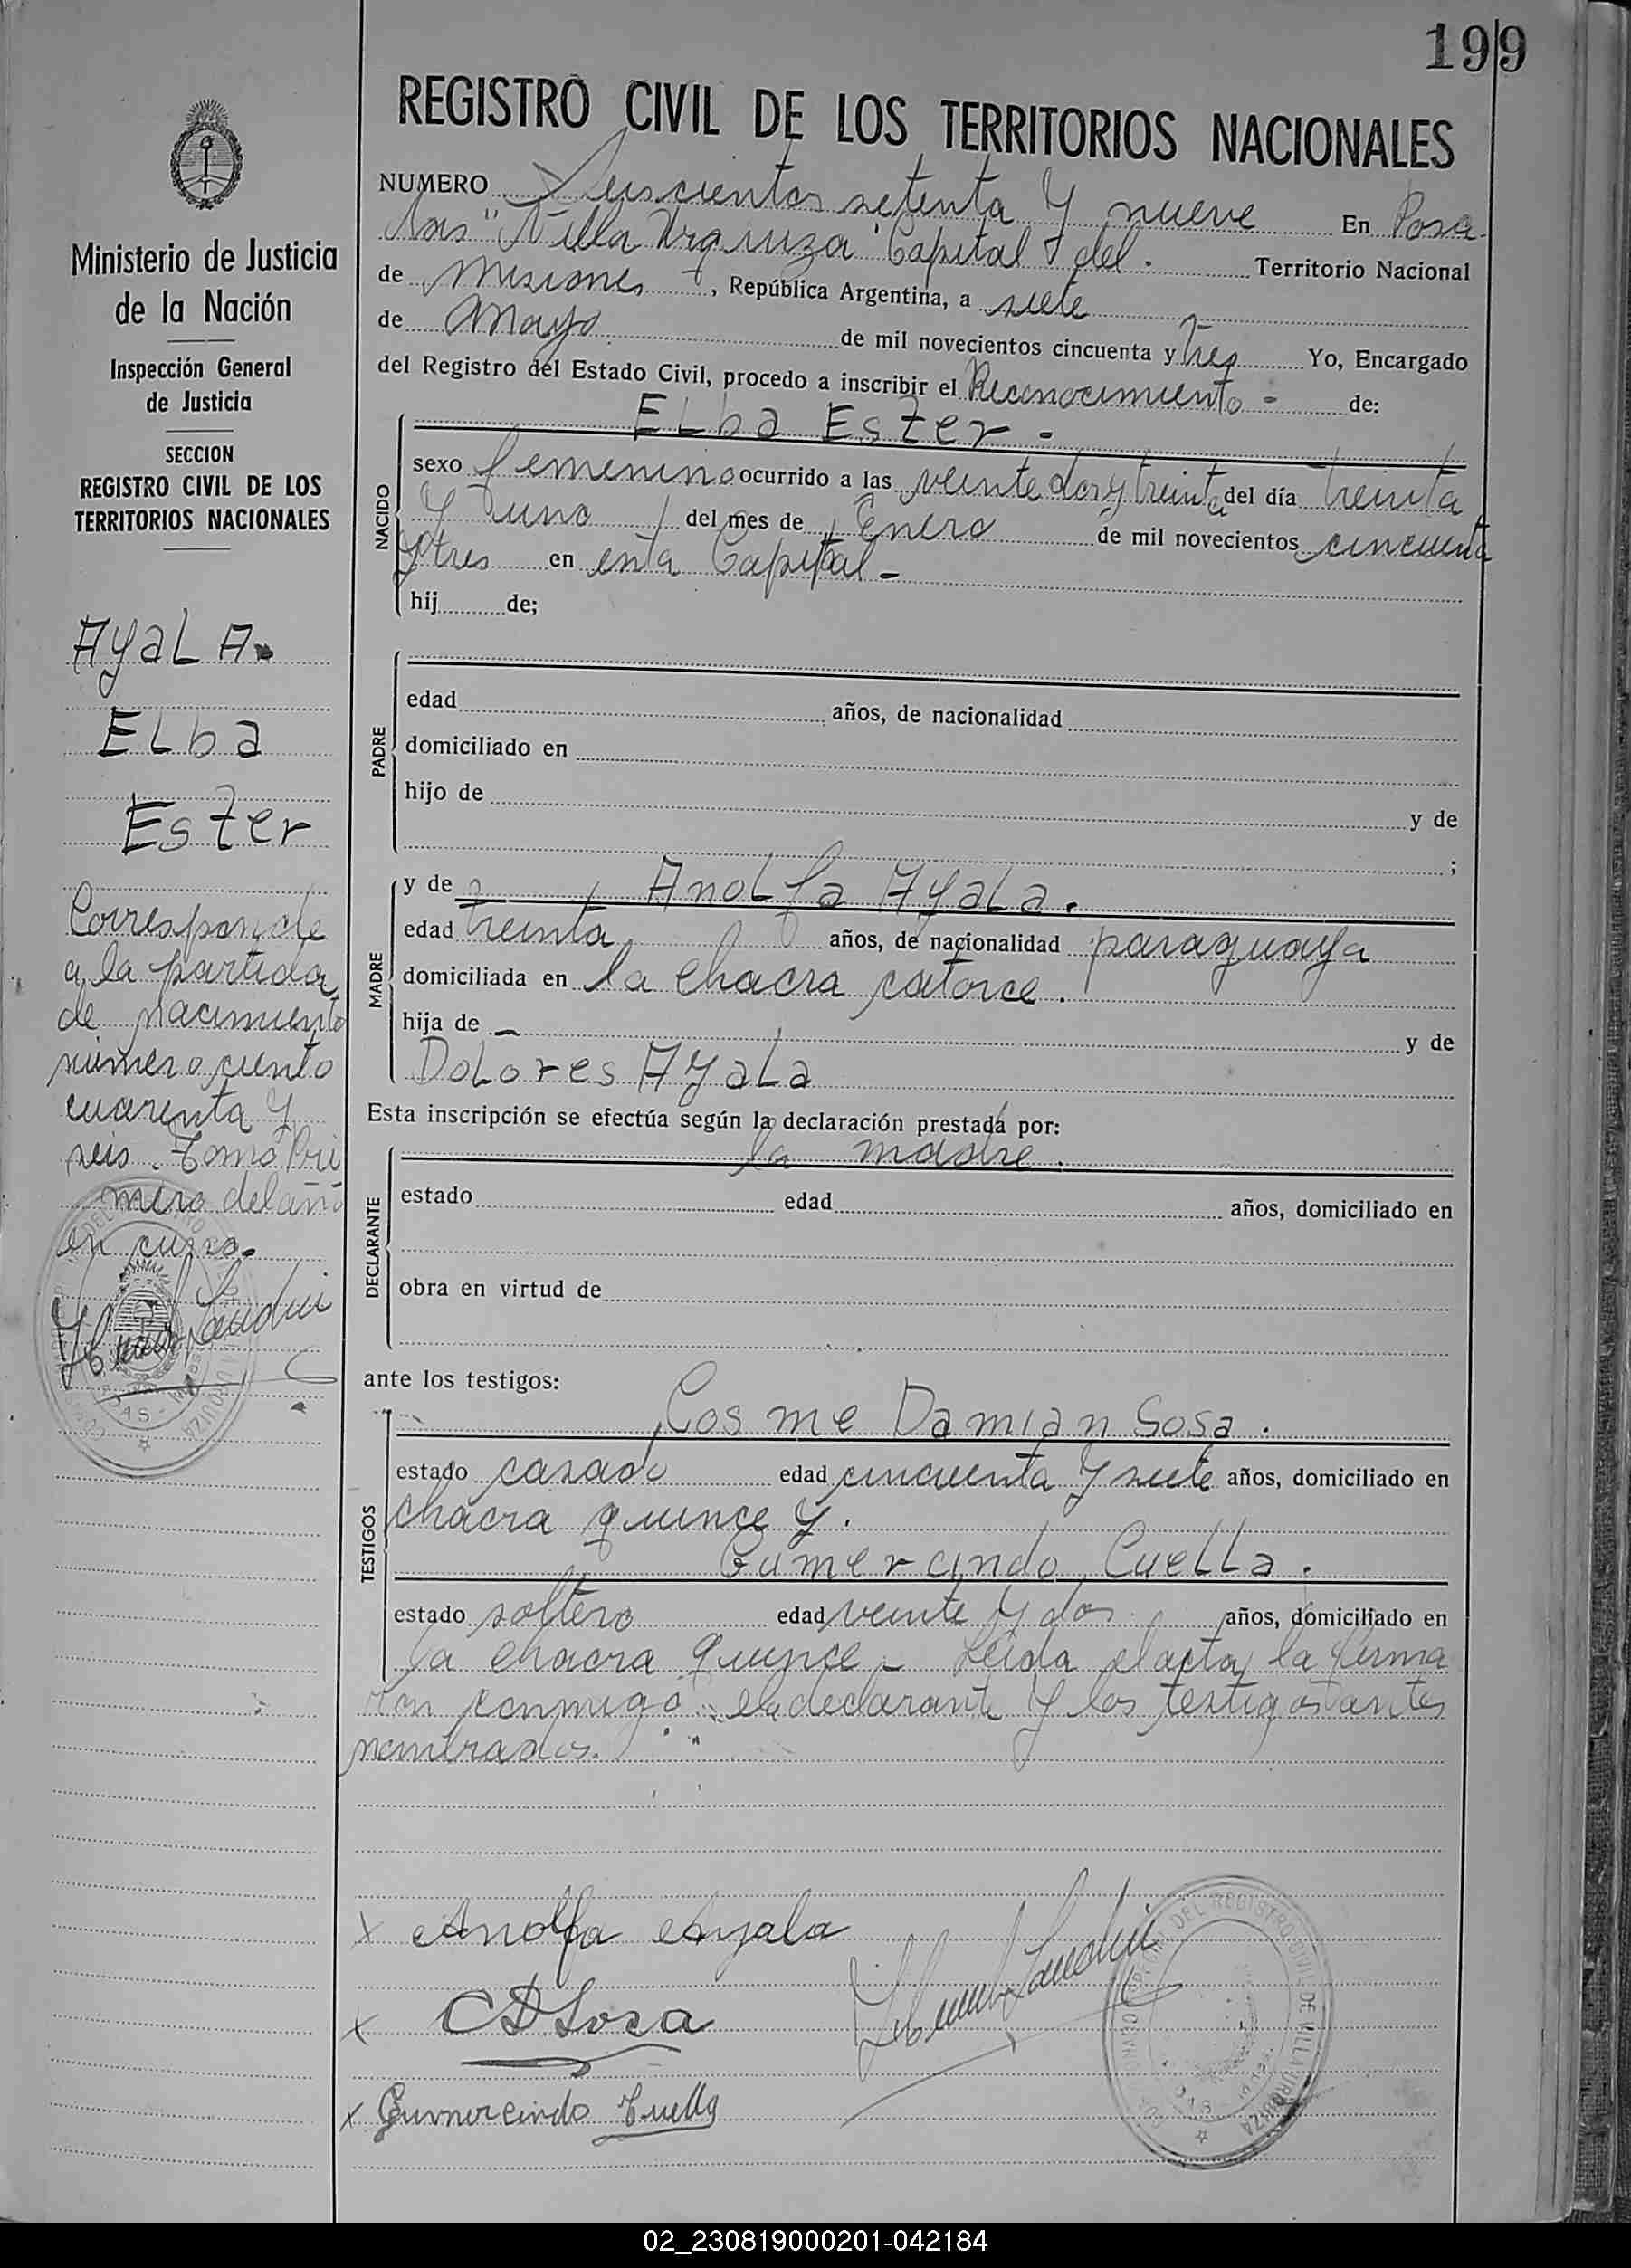 199
REGISTRO CIVIL DE LOS TERRITORIOS NACIONALES
Ministerio de Justicia
de la Nación
Inspección General
de Justicia
SECCION
REGISTRO CIVIL DE LOS
TERRITORIOS NACIONALES
AYaLA.
ELba
Ester
Corresponde
a la partida
de nacimiento
número ciento
cuarenta y
seis. Tomo Pri
mero del año
en curso.
NUMERO Seiscientos setenta y nueve En Posa-
das "Villa Urquiza" Capital del. Territorio Nacional
de Misiones, República Argentina, a siete
de Mayo de mil novecientos cincuenta y tres Yo, Encargado
del Registro del Estado Civil, procedo a inscribir el Reconocimiento - de:
ELba Ester -
NACIDO
sexo femenino ocurrido a las veinte dos y treinta del día treinta
y uno del mes de Enero de mil novecientos cincuenta
y tres en esta Capital -
hij de;
PADRE
edad años, de nacionalidad
domiciliado en
hijo de y de
;
MADRE
y de AnoLfa AyaLa.
edad treinta años, de nacionalidad paraguaya
domiciliada en la chacra catorce.
hija de — y de
DoLores AyaLa
Esta inscripción se efectúa según la declaración prestada por:
la madre.
DECLARANTE
estado edad años, domiciliado en
obra en virtud de
ante los testigos:
TESTIGOS
Cosme Damian Sosa.
estado casado edad cincuenta y siete años, domiciliado en
chacra quince y.
Gumercindo CueLLa.
estado soltero edad veinte y dos años, domiciliado en
la chacra quince - Leída el acta, la firma
ron conmigo, la declarante y los testigos antes
nombrados.
x Anolfa Ayala
x CDSosa
x Gumercindo Cuella
DEL REGISTRO CIVIL DE VILLA URQUIZA
02_230819000201-042184